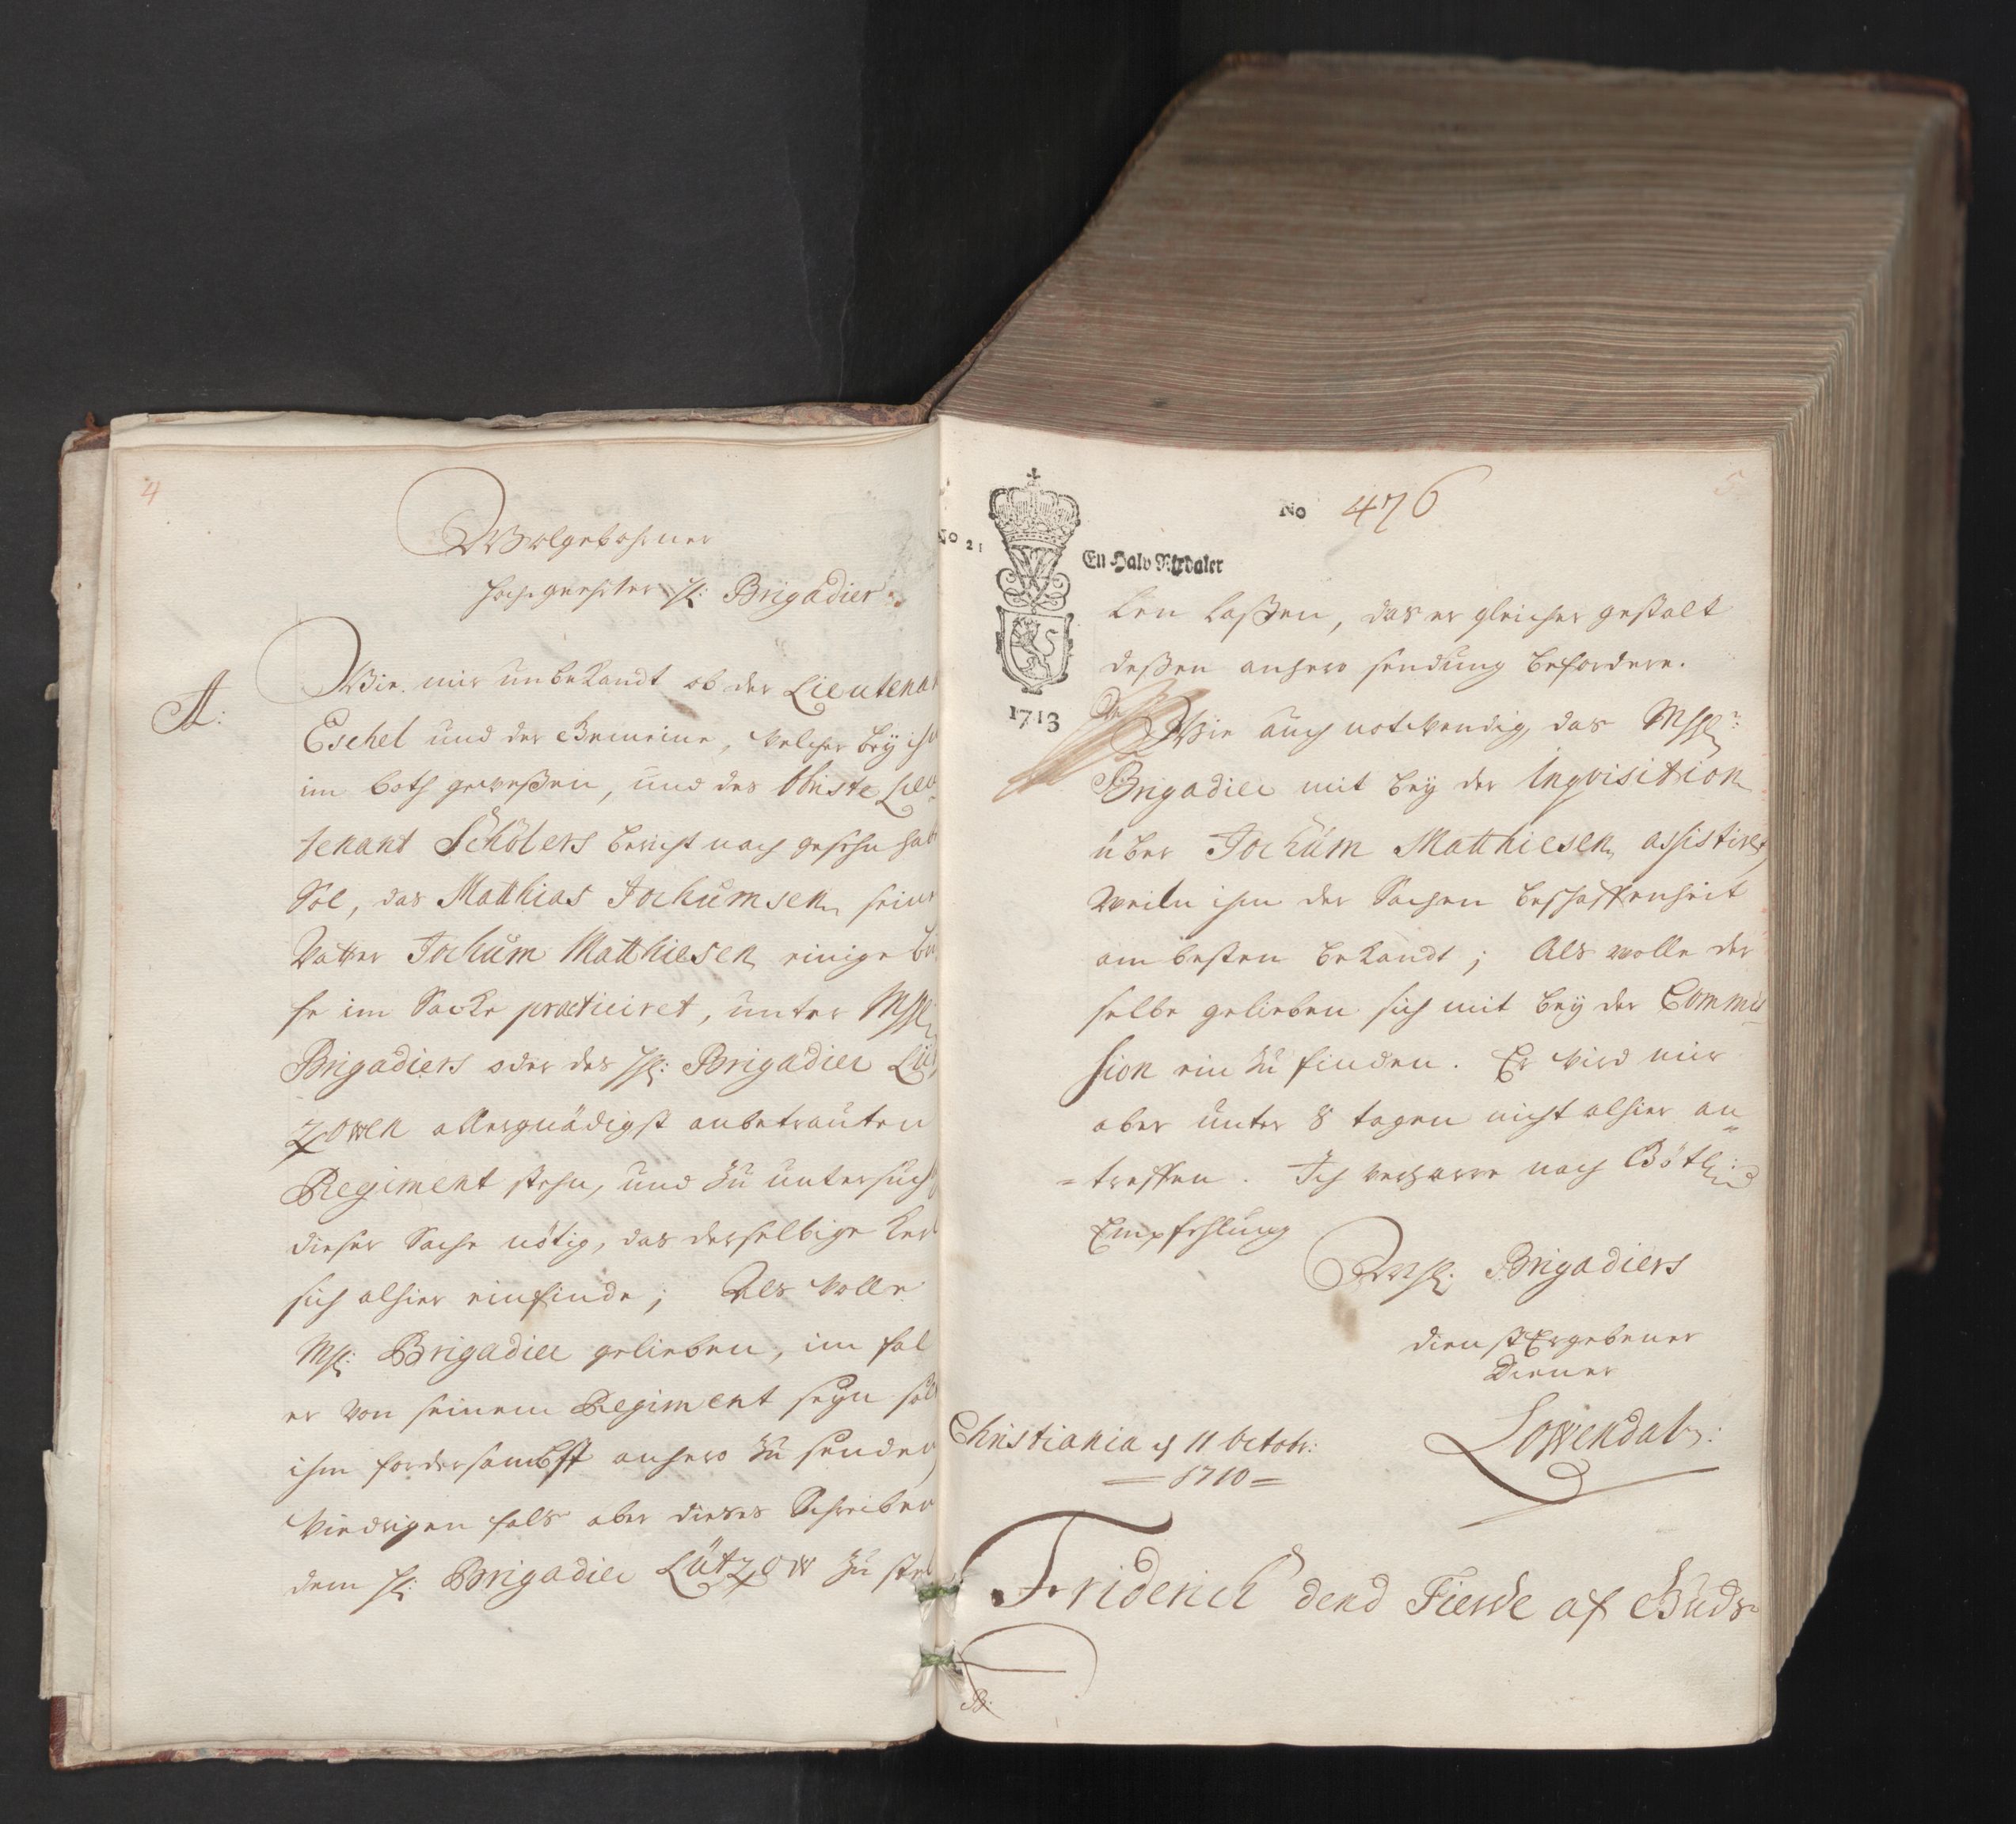 4
Wolgebohrner
Hochgeehrter H: Brigadier
A:
Wie mir unbekandt ob der Lieutenan
Eschel und der Gemeine, welcher beÿ ihm
im both geweßen, und des Obriste Lieu
tenant Schölers bericht nach gesehn hab
Sol, das Matthias Jochumsen seine
Vatter Jochum Matthiesen einige br
fe im Sacke practiciret, unter MhH:
Brigadiers oder des hH: Brigadier Lüt
zowen allergnädigst anbetrauten
Regiment stehn, und zu untersuch
dieser Sache nötig, das derselbige kerl
sich alhier einfinde; Als wolle
MH: Brigadier gelieben, im fal
er von seinem Regiment seyn sol
ihm fordersambst anhero zu senden
wiedrigen fals aber dieses Schreiben
dem H: Brigadier Lützow zu stel
No 21
En Halv Rixdaler
1713
No 476
5
len laßen, das er gleicher gestalt
deßen anhero sendung befordere.
Wie auch notwendig, das MhH:
Brigadier mit beÿ der Inqvisition
über Jochum Matthiesen assistiret,
Weiln ihm der Sachen beschaffenheit
am besten bekandt; Als wolle der
selbe gelieben sich mit beÿ der Commis
sion ein zu finden. Er wird mir
aber unter 8 tagen nicht alhier an
=treffen. Ich verharre nach Götl:
Empfehlung
MhH: Brigadiers
dienstErgebener
Diener
Christiania d 11 Octobr:
=1710=
Lowendal:
Friderich dend Fierde af Guds
B: